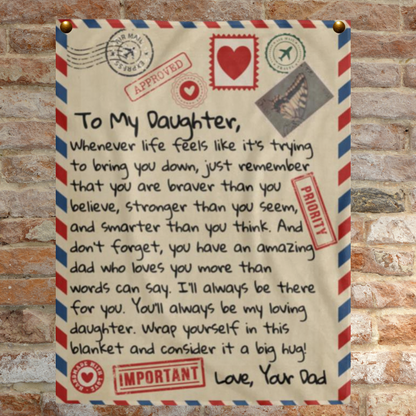 AIR MAIL
EXPRESS
APPROVED
To My Daughter,
Whenever life feels like it's trying
to bring you down, just remember
that you are braver than you
believe, stronger than you seem,
and smarter than you think. And
don't forget, you have an amazing
dad who loves you more than
words can say. I'll always be there
for you. You'll always be my loving
daughter. Wrap yourself in this
blanket and consider it a big hug!
PRIORITY
IMPORTANT
Love, Your Dad